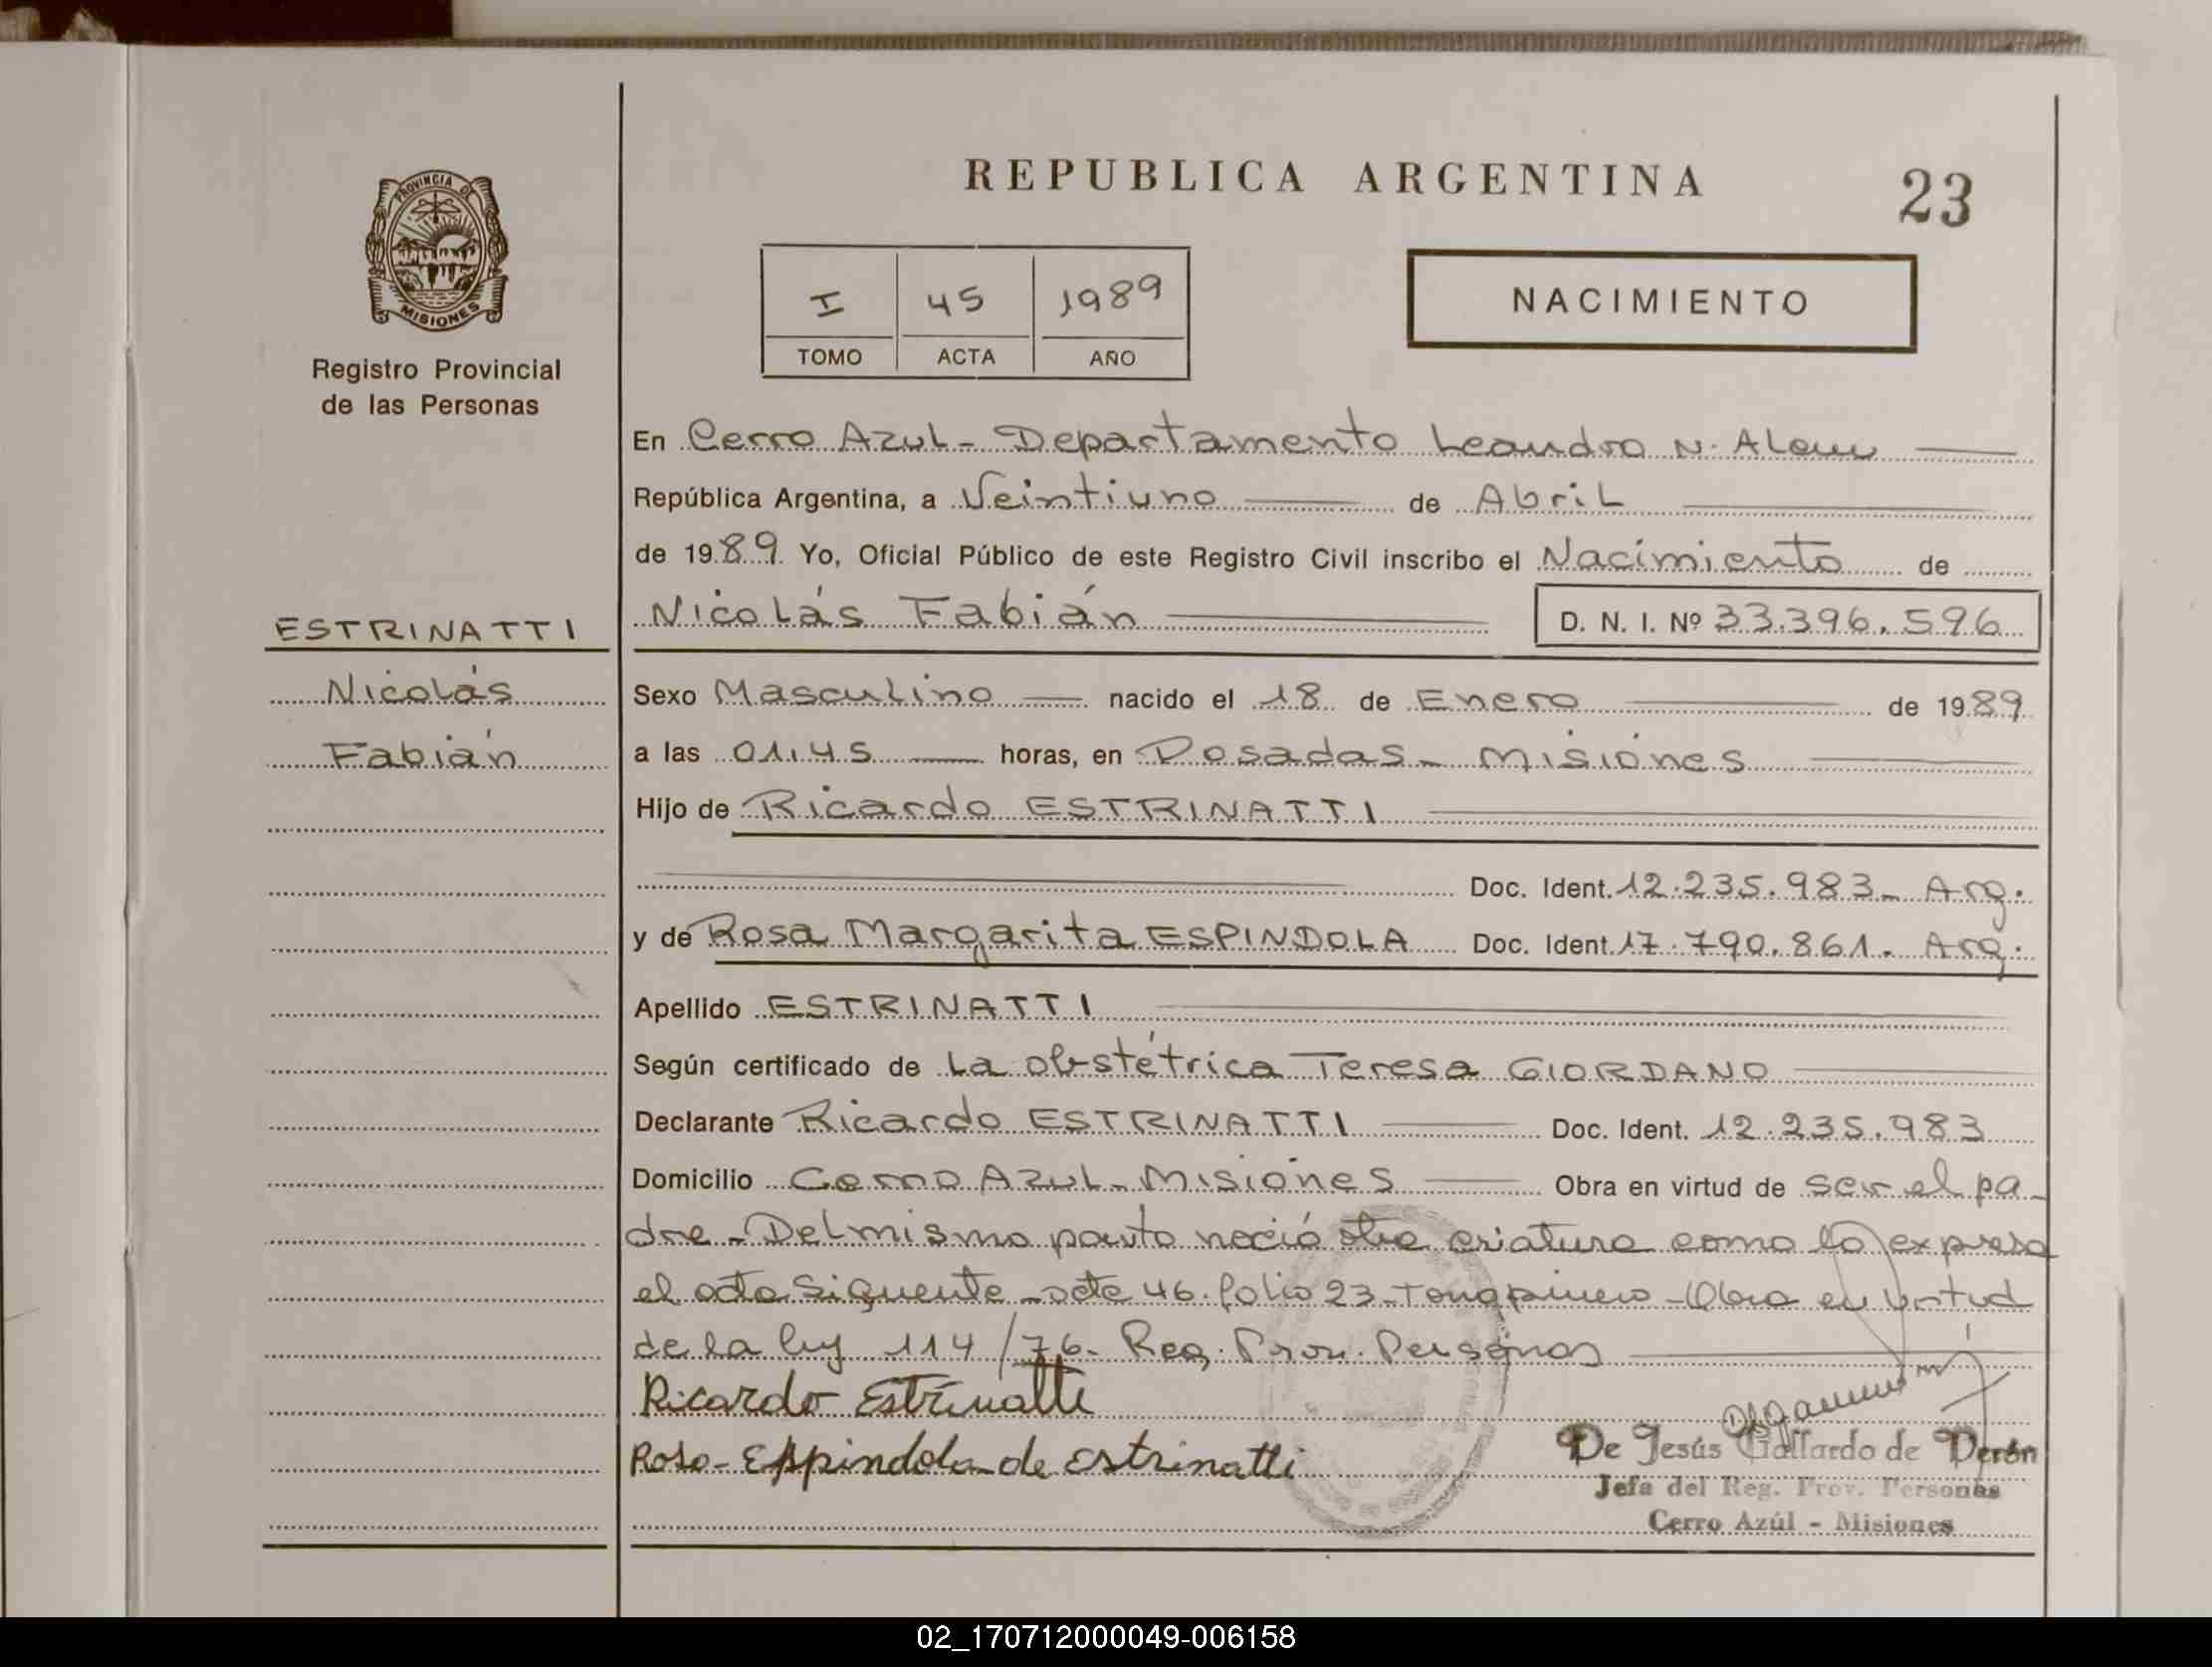 PROVINCIA DE
MISIONES
Registro Provincial
de las Personas
ESTRINATTI
Nicolás
Fabián
REPUBLICA ARGENTINA
23
I 45 1989
TOMO ACTA AÑO
NACIMIENTO
En Cerro Azul - Departamento Leandro N. Alem
República Argentina, a Veintiuno de Abril
de 1989 Yo, Oficial Público de este Registro Civil inscribo el Nacimiento de
Nicolás Fabián D. N. I. Nº 33.396.596
Sexo Masculino nacido el 18 de Enero de 1989
a las 01.45 horas, en Posadas - Misiones
Hijo de Ricardo ESTRINATTI
Doc. Ident. 12.235.983 - Arg.
y de Rosa Margarita ESPINDOLA Doc. Ident. 17.790.861. Arg.
Apellido ESTRINATTI
Según certificado de La obstétrica Teresa GIORDANO
Declarante Ricardo ESTRINATTI Doc. Ident. 12.235.983
Domicilio Cerro Azul - Misiones Obra en virtud de ser el pa-
dre - Del mismo parto nació otra criatura como lo expresa
el acta Siguente - acta 46. folio 23 - Tomo primero - Obra en virtud
de la ley 114/76 - Reg. Prov. Personas
Ricardo Estrinatti
Rosa - Espindola de Estrinatti
De Jesús Gallardo de Perón
Jefa del Reg. Prov. Personas
Cerro Azúl - Misiones
02_170712000049-006158